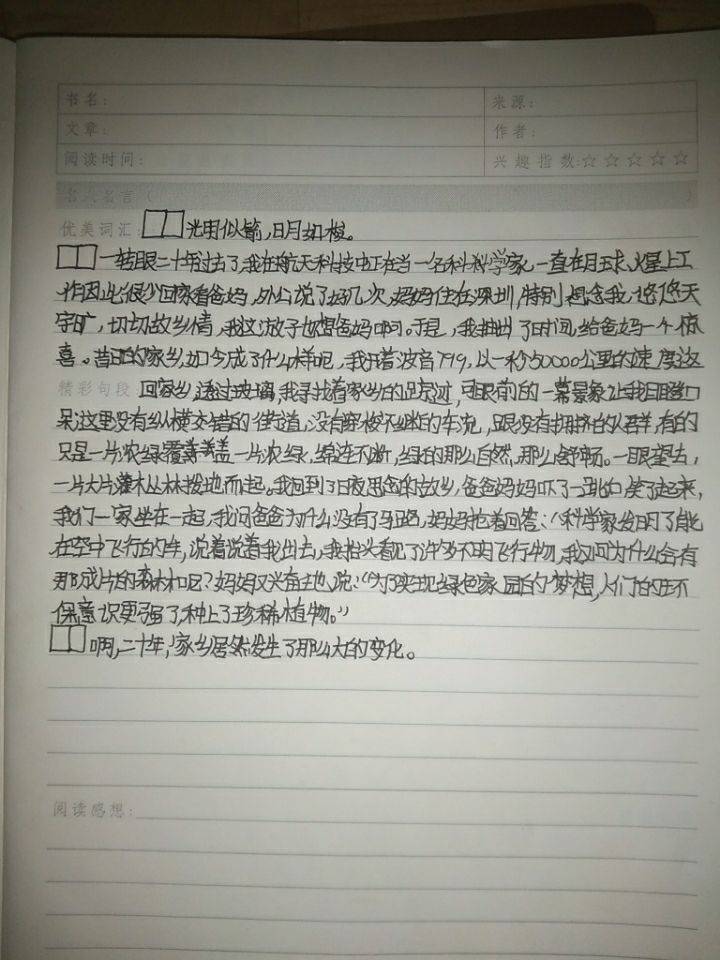 书名: 来源:
文章: 作者:
阅读时间: 兴趣指数:☆☆☆☆☆
名人名言 ( )
优美词汇: 光阴似箭,日月如梭。
一转眼二十年过去了,我在航天科技中正在当一名科科学家,一直在月球、火星上工
作因此很少回家看爸妈,外公说了好几次,妈妈住在深圳,特别想念我,悠悠天
宇旷,切切故乡情,我这游子也想爸妈啊。于是,我抽出了时间,给爸妈一个惊
喜。昔日的家乡,如今成了什么样呢,我开着波音799,以一秒50000公里的速度这
精彩句段 回家乡,透过玻璃,我寻找着家乡的足迹,可眼前的一幕景象让我目瞪口
呆这里没有纵横交错的街道,没有穿梭不断的车流,跟没有拥挤的人群,有的
只是一片浓绿覆盖一片浓绿,绵连不断,绿的那么自然,那么舒畅。一眼望去,
一片大片灌木丛林拔地而起。我回到了日夜思念的故乡,爸爸妈妈吓了一跳 笑了起来,
我们一家坐在一起,我问爸爸为什么没有了马路,妈妈抢着回答:“科学家发明了能
在空中飞行的车,说着说着我出去,我抬头看见了许多不明飞行物,我又问为什么会有
那成片的森林呢?妈妈又兴奋地说:“为了实现绿色家园的梦想,人们的环
保意识更强了,种上了珍稀植物。”
啊,二十年,家乡居然发生了那么大的变化。
阅读感想: